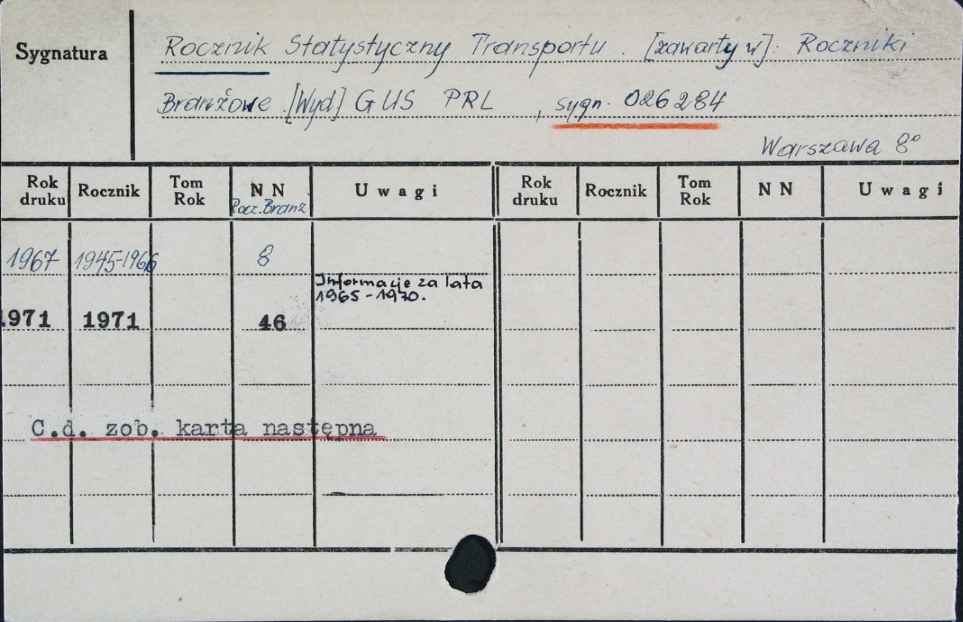 Sygnatura
Rocznik Statystyczny Transportu. [zawarty w]: Roczniki
Branżowe. [Wyd] GUS PRL, sygn. 026284
Warszawa 8°
Rok druku Rocznik Tom Rok NN Uwagi Rok druku Rocznik Tom Rok NN Uwagi
Rocz. Branż
1967 1945-1966 8
Informacje za lata
1965-1970.
1971 1971 46
C.d. zob. karta następna